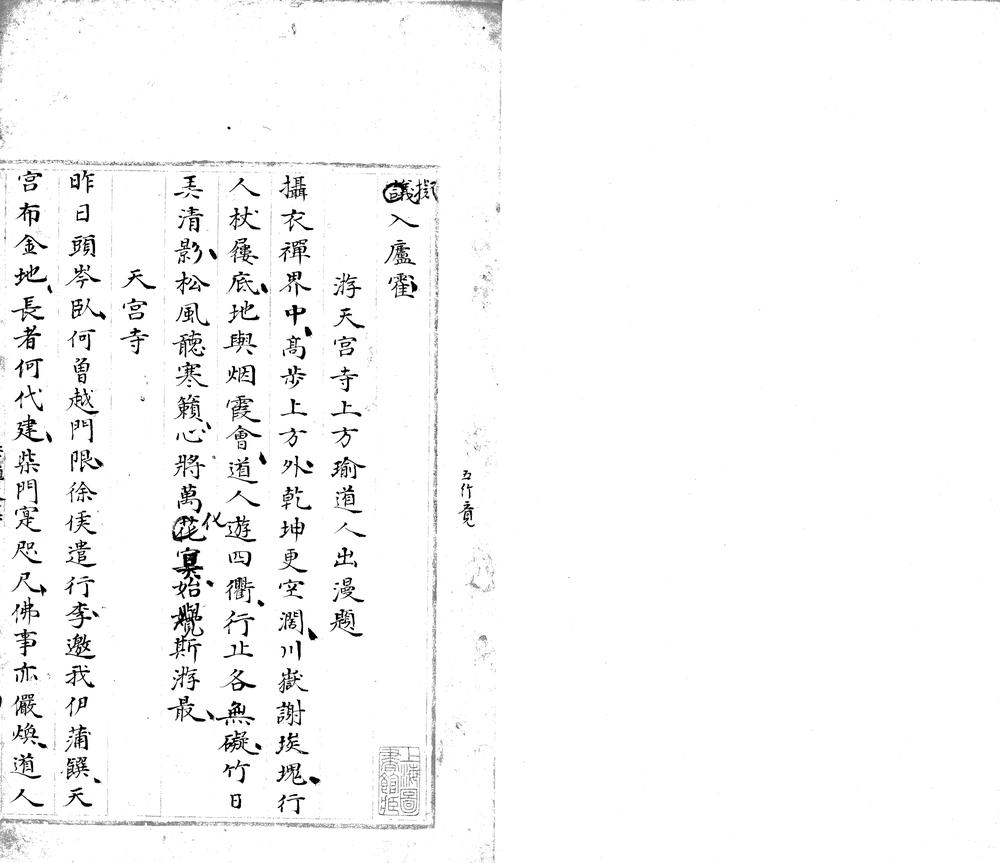 議入廬霍
擬
游天宫寺上方瑜道人出漫題
攝衣禪界中高步上方外乾坤更空濶川嶽謝埃堁行
人杖屨底地與烟霞會道人遊四衢行止各無礙竹日
美清影松風聽寒籟心將萬花寞始覺斯游最
化
天宫寺
昨日頭岑臥何曾越門限徐侯遣行李邀我伊蒲饌天
宫布金地長者何代建柴門寔咫尺佛事亦儼煥道人
上海圖書館藏